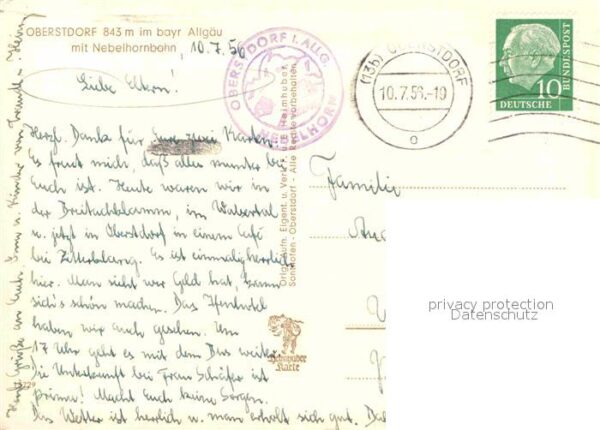 OBERSTDORF 843 m im bayr Allgäu
mit Nebelhornbahn, 10.7.56
Liebe Eltern!
Herzl. Dank für Eure zwei Karten.
Es freut mich, daß alles munter bei
Euch ist. Heute waren wir in
der Breitachklamm, im Walsertal
u. jetzt in Oberstdorf in einem Café
bei Zitherklang. Es ist einmalig herrlich
hier. Man sieht wer Geld hat, kann
sich's schön machen. Das
haben wir auch gesehen. Um
17 Uhr geht es mit dem Bus weiter.
Die Unterkunft bei Frau Schäfer ist
prima! Macht Euch keine Sorgen.
Das Wetter ist herrlich u. man erholt sich gut.
OBERSTDORF I. ALLG.
NEBELHORN
Orig. Aufn. Eigent. u. Verl.
Heimhuber
Sonthofen-Oberstdorf - Alle Rechte vorbehalten
Heimhuber
Karte
(13b) OBERSTDORF
10.7.56.-19
o
10
DEUTSCHE
BUNDESPOST
Familie
privacy protection
Datenschutz